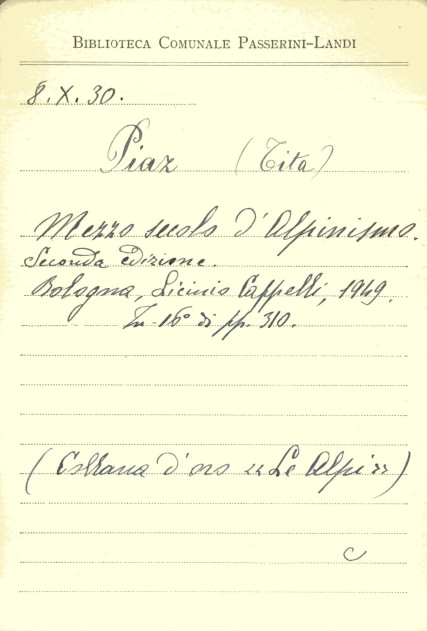 BIBLIOTECA COMUNALE PASSERINI-LANDI
8. X. 30.
Piaz (Tita)
Mezzo secolo d'Alpinismo.
Seconda edizione.
Bologna, Licinio Cappelli, 1949.
In-16° di pp. 310.
(Collana d'oro «Le Alpi»)
C